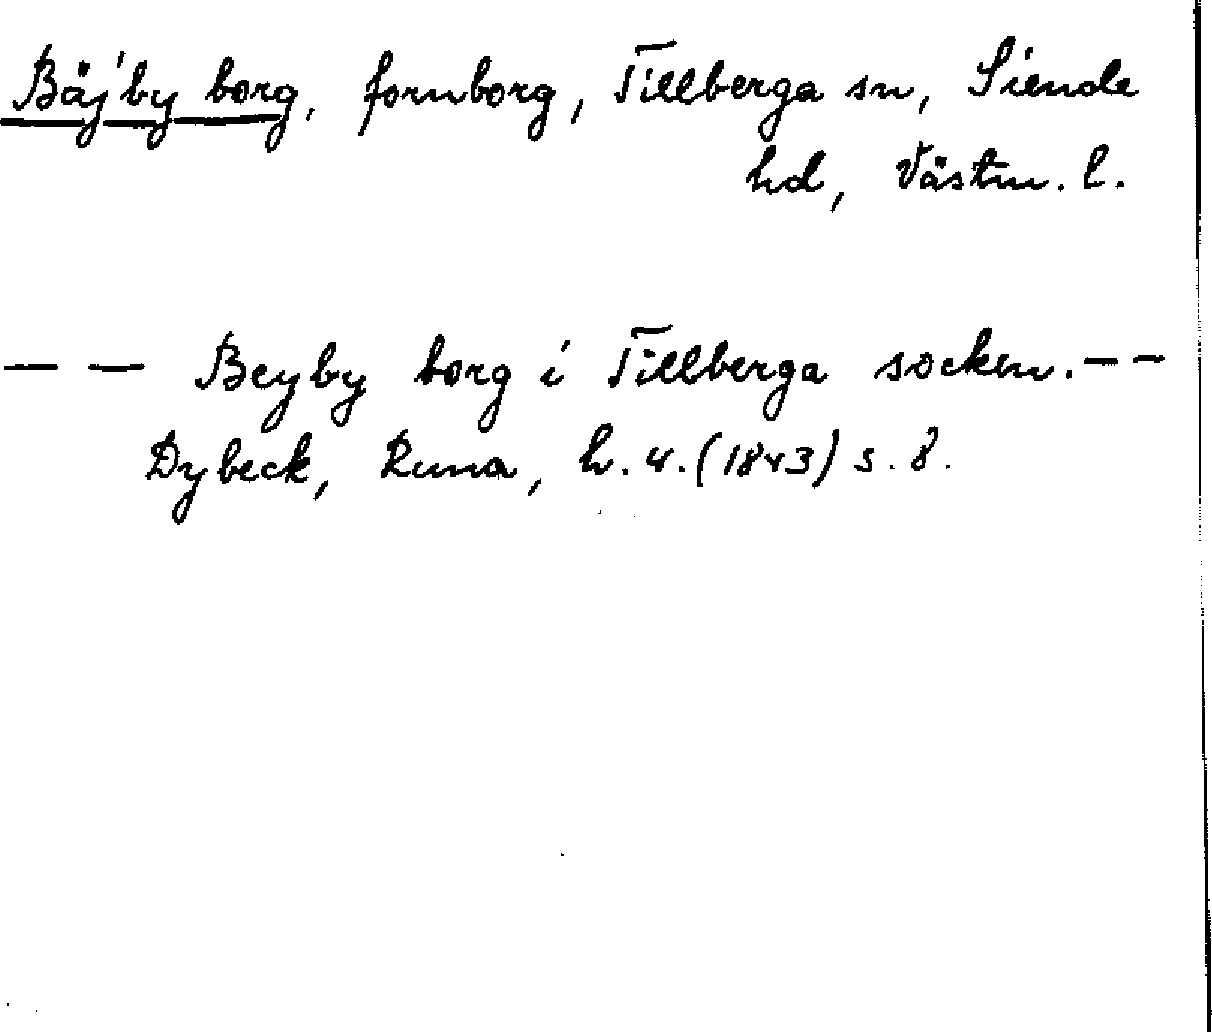 Bäj'by borg, fornborg, Tillberga sn, Siende
hd, Västm. l.
— — Beyby borg i Tillberga socken. – –
Dybeck, Runa, h. 4. (1843) s. 8.